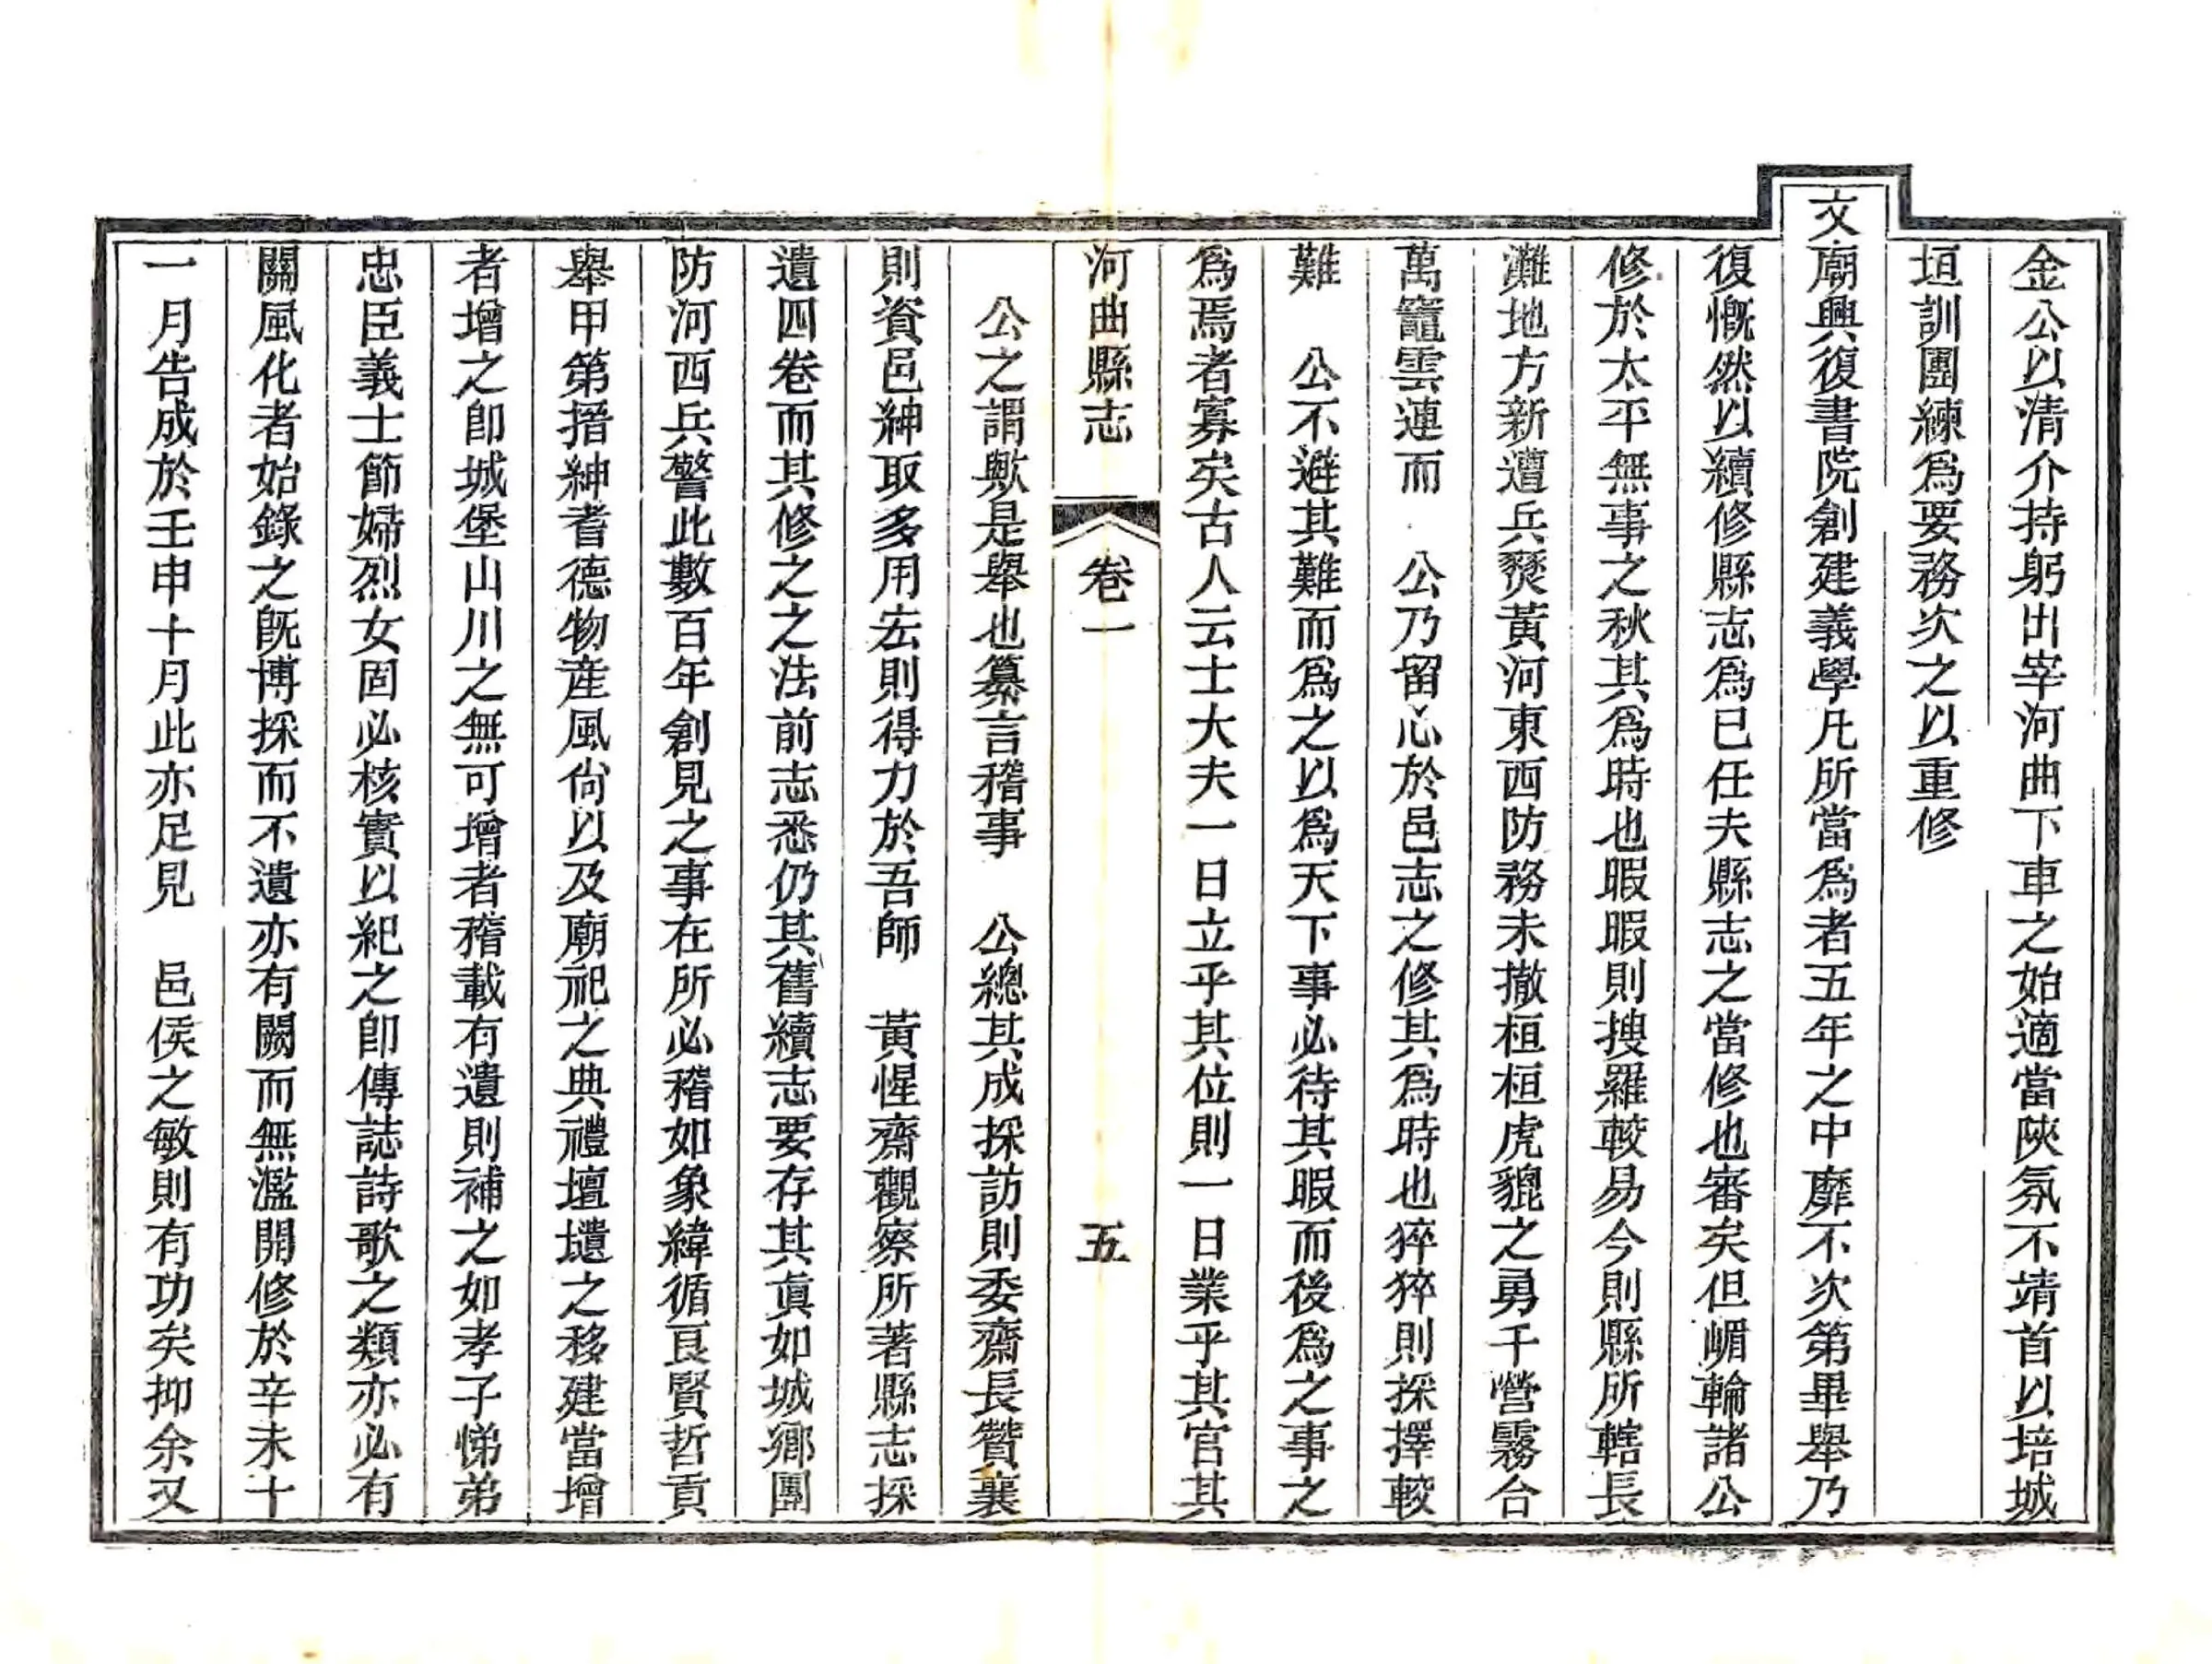 金公以清介持躬出宰河曲下車之始適當陝氛不靖首以培城
垣訓團練爲要務次之以重修
文廟興復書院創建義學凡所當爲者五年之中靡不次第畢舉乃
復慨然以續修縣志爲已任夫縣志之當修也審矣但嵋輪諸公
修於太平無事之秋其爲時也暇暇則搜羅較易今則縣所轄長
灘地方新遭兵燹黃河東西防務未撤桓桓虎貔之勇千營霧合
萬竈雲連而　公乃留心於邑志之修其爲時也猝猝則採擇較
難　公不避其難而爲之以爲天下事必待其暇而後爲之事之
爲焉者寡矣古人云士大夫一日立乎其位則一日業乎其官其
河曲縣志　卷一　五
公之謂歟是舉也纂言稽事　公總其成採訪則委齋長贊襄
則資邑紳取多用宏則得力於吾師　黃惺齋觀察所著縣志採
遺四卷而其修之之法前志悉仍其舊續志要存其眞如城鄉團
防河西兵警此數百年創見之事在所必稽如象緯循良賢哲貢
舉甲第搢紳耆德物產風尙以及廟祀之典禮壇壝之移建當增
者增之卽城堡山川之無可增者稽載有遺則補之如孝子悌弟
忠臣義士節婦烈女固必核實以紀之卽傳誌詩歌之類亦必有
關風化者始錄之旣博採而不遺亦有闕而無濫開修於辛未十
一月告成於壬申十月此亦足見　邑侯之敏則有功矣抑余又